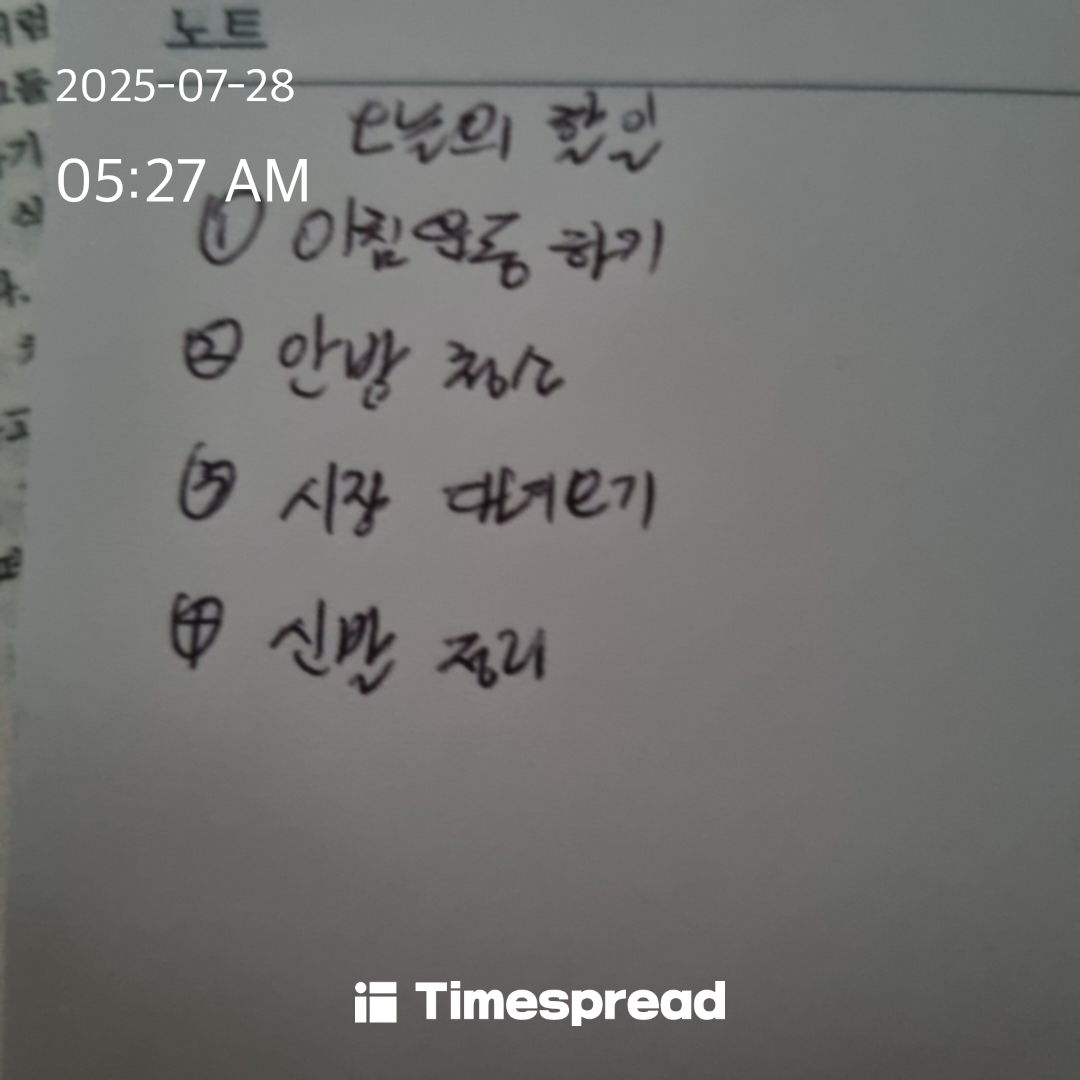 노트
2025-07-28
오늘의 할일
05:27 AM
① 아침운동 하기
② 안방 청소
③ 시장 다녀오기
④ 신발 정리
Timespread